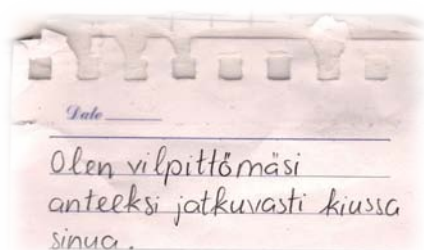 Date
Olen vilpittömäsi
anteeksi jatkuvasti kiussa
sinua.